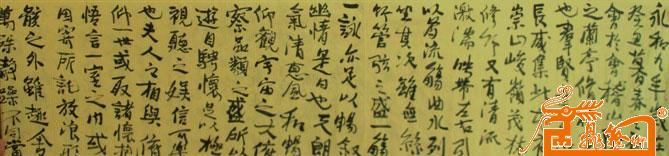 永和九年歲
癸丑暮春
會于會稽
之蘭亭脩
也羣賢
長咸集此
崇山峻嶺茂
脩竹又有清流
激湍暎帶左
以為流觴曲水列
坐其次雖無絲
竹管弦之盛一觴
一詠亦足以暢敘
幽情是日也天朗
氣清惠風和暢
仰觀宇宙之大俯
察品類之盛所以
遊目騁懷足以極
視聽之娛信可樂
也夫人之相與俯
仰一世或取諸懷抱
悟言一室之內或
因寄所託放浪形
骸之外雖趣舍
萬殊靜躁不同當